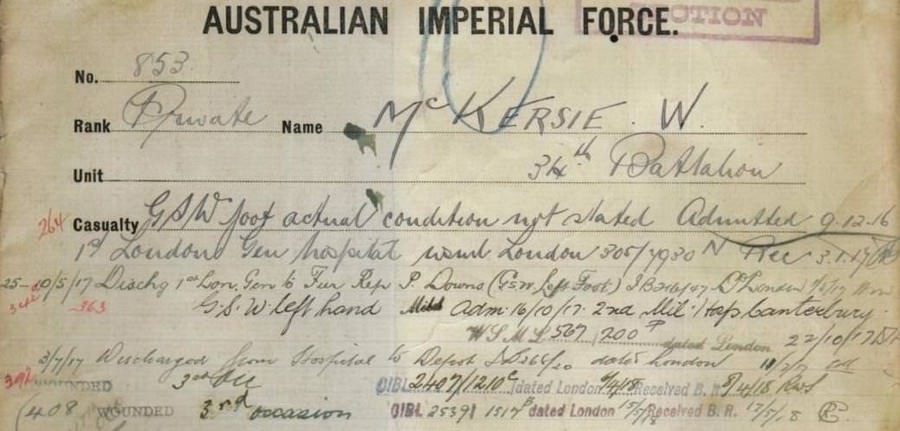 AUSTRALIAN IMPERIAL FORCE.
CTION
No. 853
Rank Private Name McKERSIE. W.
Unit 34th Battalion
264 Casualty GSW foot actual condition not stated Admitted 9.12.16
1st London Gen hospital London 305/7930 N Rec 3.1.17
25-10/5/17 Dischg 1st Lon. Gen to Fur Rep P. Downs (GSW Left Foot)
363 G.S.W left hand Mild Adm. 16/10/17. 2nd Mil. Hosp Canterbury.
567 200 dated London 22/10/17
3/7/17 Discharged from Hospital to Depot dated London
392 WOUNDED 3rd Occ CIBL 2407/1210 dated London 9/4/18 Received B. R. 9/4/18
(408 WOUNDED 3rd occasion CIBL 25391 1517 dated London 15/5/18 Received B. R. 17/5/18